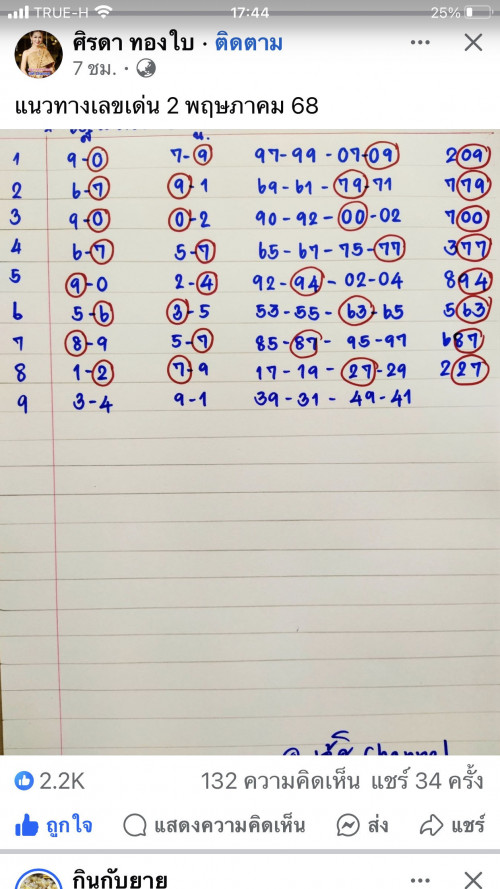 TRUE-H 17:44 25%
ศิรดา ทองใบ · ติดตาม
7 ชม. ·
แนวทางเลขเด่น 2 พฤษภาคม 68
1 9-0 7-9 97-99-07-09 209
2 6-7 9-1 69-61-79-71 779
3 9-0 0-2 90-92-00-02 700
4 6-7 5-7 65-67-75-77 377
5 9-0 2-4 92-94-02-04 894
6 5-6 3-5 53-55-63-65 563
7 8-9 5-7 85-87-95-97 687
8 1-2 7-9 17-19-27-29 227
9 3-4 9-1 39-31-49-41
Channel
2.2K 132 ความคิดเห็น แชร์ 34 ครั้ง
ถูกใจ แสดงความคิดเห็น ส่ง แชร์
กินกับยาย